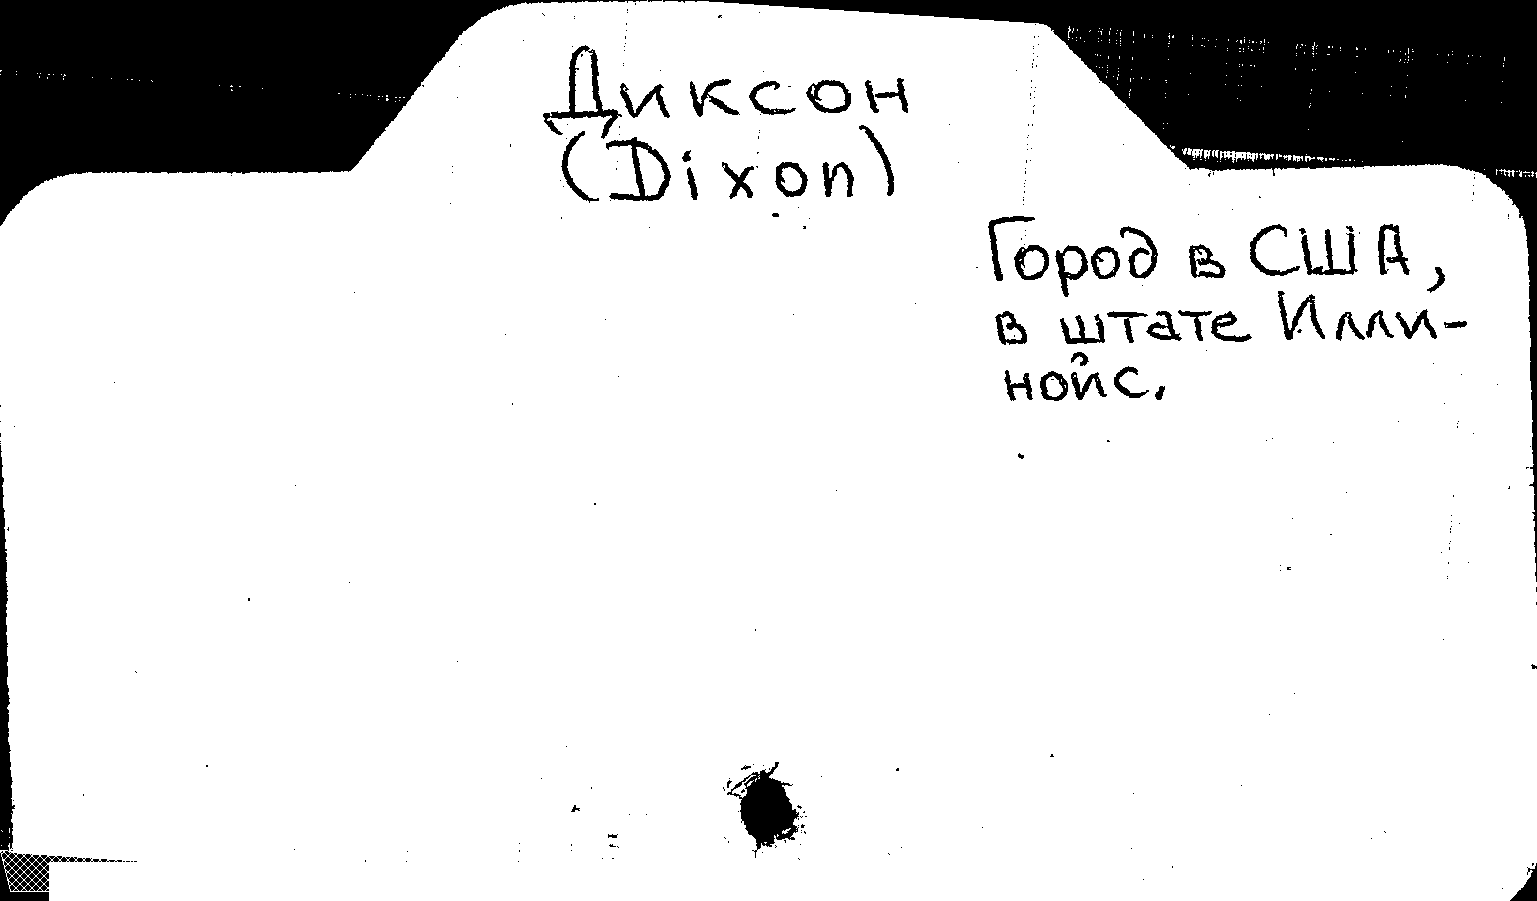 Диксон
(Dixon)
Город в США,
в штате Илли-
нойс.